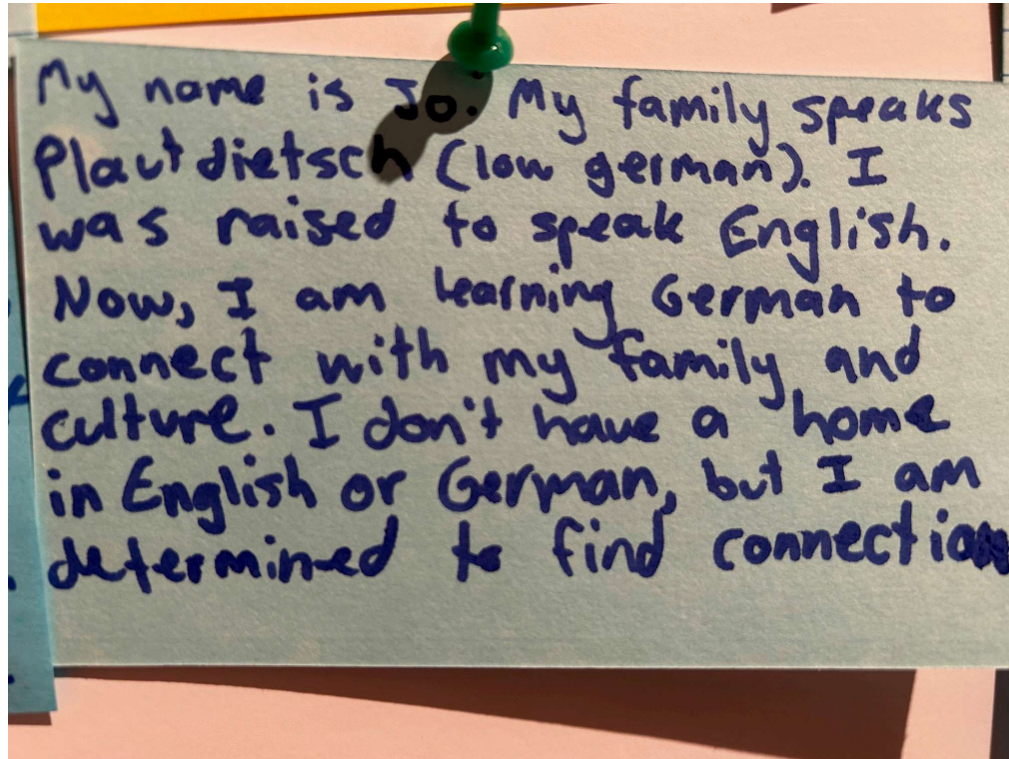 My name is Jo. My family speaks
Plautdietsch (low german). I
was raised to speak English.
Now, I am learning German to
connect with my family and
culture. I don't have a home
in English or German, but I am
determined to find connection